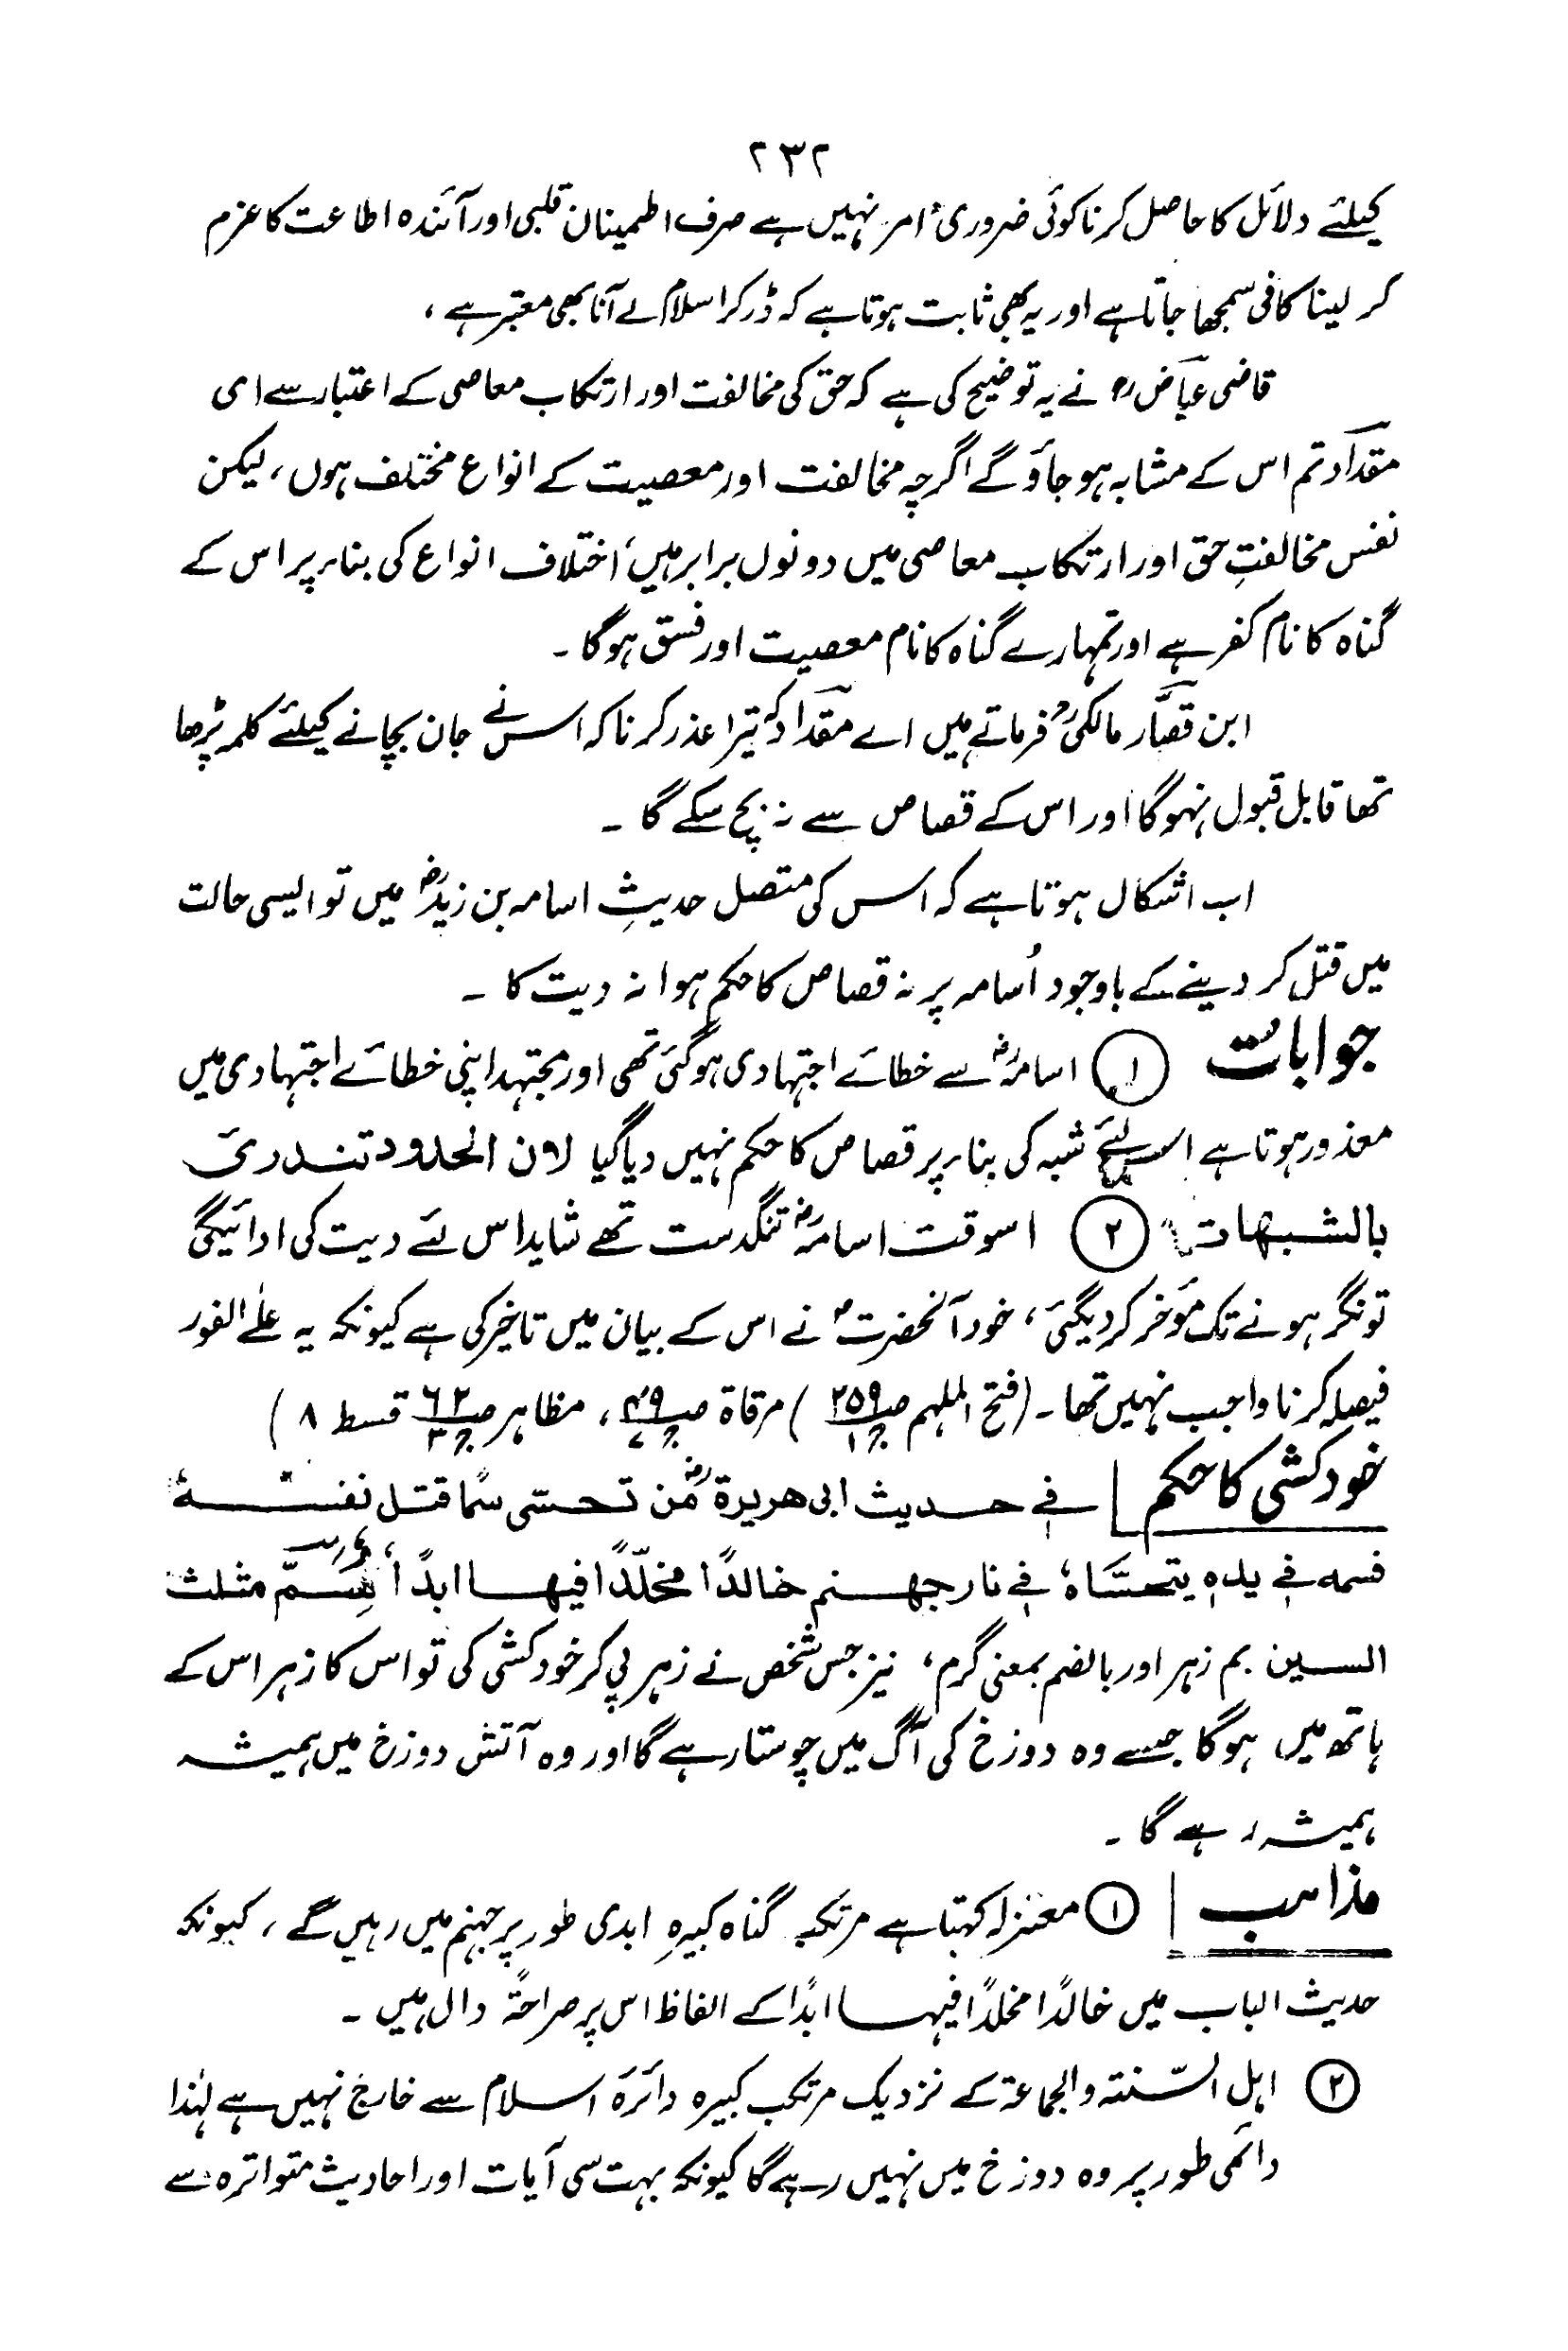 ۲۳۲
کیلئے دلائل کا حاصل کرنا کوئی ضروری امر نہیں ہے صرف اطمینان قلبی اور آئندہ اطاعت کا عزم
کر لینا کافی سمجھا جاتا ہے اور یہ بھی ثابت ہوتا ہے کہ ڈر کر اسلام لے آنا بھی معتبر ہے ،
قاضی عیاضؒ نے یہ توضیح کی ہے کہ حق کی مخالفت اور ارتکاب معاصی کے اعتبار سے ای
مقداد تم اس کے مشابہ ہو جاؤ گے اگرچہ مخالفت اور معصیت کے انواع مختلف ہوں ، لیکن
نفس مخالفتِ حق اور ارتکاب معاصی میں دونوں برابر ہیں، اختلاف انواع کی بناء پر اس کے
گناہ کا نام کفر ہے اور تمہارے گناہ کا نام معصیت اور فسق ہوگا ۔
ابن قصّار مالکیؒ فرماتے ہیں اے مقداد تیرا عذر کرنا کہ اس نے جان بچانے کیلئے کلمہ پڑھا
تھا قابل قبول نہوگا اور اس کے قصاص سے نہ بچ سکے گا ۔
اب اشکال ہوتا ہے کہ اس کی متصل حدیثِ اسامہ بن زیدؓ میں تو ایسی حالت
میں قتل کر دینے کے باوجود اُسامہ پر نہ قصاص کا حکم ہوا نہ دیت کا ۔
جوابات ① اسامہؓ سے خطائے اجتہادی ہوگئی تھی اور مجتہد اپنی خطائے اجتہادی میں
معذور ہوتا ہے اسلئے شبہ کی بناء پر قصاص کا حکم نہیں دیا گیا لان الحدود تندرئ
بالشبہات ② اسوقت اسامہؓ تنگدست تھے شاید اس لئے دیت کی ادائیگی
تونگر ہونے تک مؤخر کر دیگئی ، خود آنحضرتؐ نے اس کے بیان میں تاخیر کی ہے کیونکہ یہ علٰے الفور
فیصلہ کرنا واجب نہیں تھا ۔ (فتح الملہم ص۲۵۹ ج۱ ) مرقاۃ ص ج۷ ، مظاہر ص۶۲ ج۳ قسط ۸ )
خودکشی کا حکم فی حدیث ابی ھریرۃؓ من تحسّی سمًا قتل نفسہٗ
فسمہ فی یدہ یتحسّاہ فی نار جھنم خالدًا مخلّدًا فیھا ابدًا، سم مثلث
السین بم زہر اور بالضم بمعنی گرم ، نیز جس شخص نے زہر پی کر خودکشی کی تو اس کا زہر اس کے
ہاتھ میں ہوگا جسے وہ دوزخ کی آگ میں چوستا رہے گا اور وہ آتش دوزخ میں ہمیشہ
ہمیشہ رہے گا ۔
مذاہب ① معتزلہ کہتا ہے مرتکب گناہ کبیرہ ابدی طور پر جہنم میں رہیں گے ، کیونکہ
حدیث الباب میں خالدًا مخلدًا فیہا ابدًا کے الفاظ اس پر صراحۃً دال ہیں ۔
② اہل السّنتہ والجماعۃ کے نزدیک مرتکب کبیرہ دائرۂ اسلام سے خارج نہیں ہے لہٰذا
دائمی طور پر وہ دوزخ میں نہیں رہے گا کیونکہ بہت سی آیات اور احادیث متواترہ سے